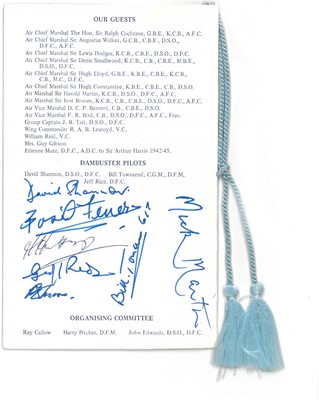 OUR GUESTS
Air Chief Marshal The Hon. Sir Ralph Cochrane, G.B.E., K.C.B., A.F.C.
Air Chief Marshal Sir Augustus Walker, G.C.B., C.B.E., D.S.O.,
D.F.C., A.F.C.
Air Chief Marshal Sir Lewis Hodges, K.C.B., C.B.E., D.S.O., D.F.C.
Air Chief Marshal Sir Denis Smallwood, K.C.B., C.B., C.B.E., M.B.E.,
D.S.O., D.F.C.
Air Chief Marshal Sir Hugh Lloyd, G.B.E., K.B.E., C.B.E., K.C.B.,
C.B., M.C., D.F.C.
Air Chief Marshal Sir Hugh Constantine, K.B.E., C.B.E., C.B., D.S.O.
Air Marshal Sir Harold Martin, K.C.B., D.S.O., D.F.C., A.F.C.
Air Marshal Sir Ivor Broom, K.C.B., C.B., C.B.E., D.S.O., D.F.C., A.F.C.
Air Vice Marshal D. C. P. Bennett, C.B., C.B.E., D.S.O.
Air Vice Marshal F. R. Bird, C.B., D.S.O., D.F.C., A.F.C., Frae.
Group Captain J. B. Tait, D.S.O., D.F.C.
Wing Commander R. A. B. Learoyd, V.C.
William Reid, V.C.
Mrs. Guy Gibson
Etienne Maze, D.F.C., A.D.C. to Sir Arthur Harris 1942-45.
DAMBUSTER PILOTS
David Shannon, D.S.O., D.F.C. Bill Townsend, C.G.M., D.F.M.
Jeff Rice, D.F.C.
David Shannon
Basil
Mick Martin
Bill
ORGANISING COMMITTEE
Ray Callow Harry Pitcher, D.F.M. John Edwards, D.S.O., D.F.C.